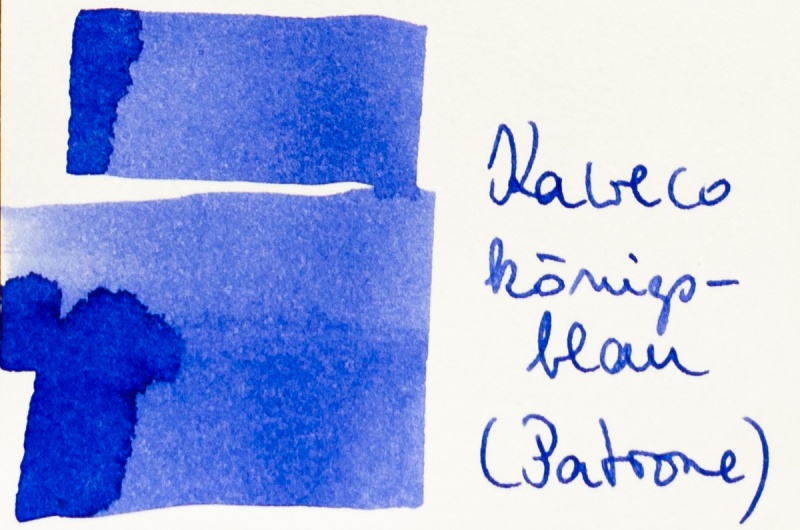 Kaweco
königs-
blau
(Patrone)